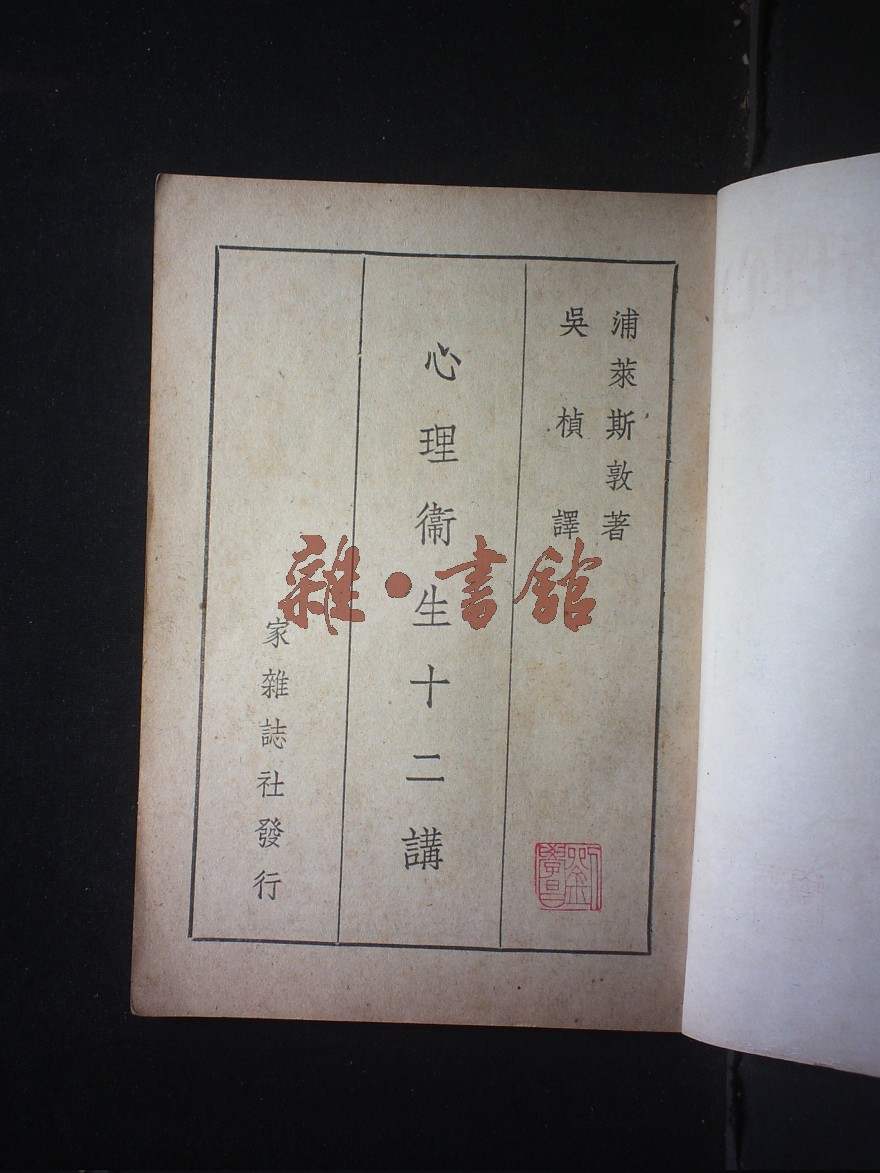 浦萊斯敦著
吳楨譯
心理衞生十二講
家雜誌社發行
劉學昌
雜·書館